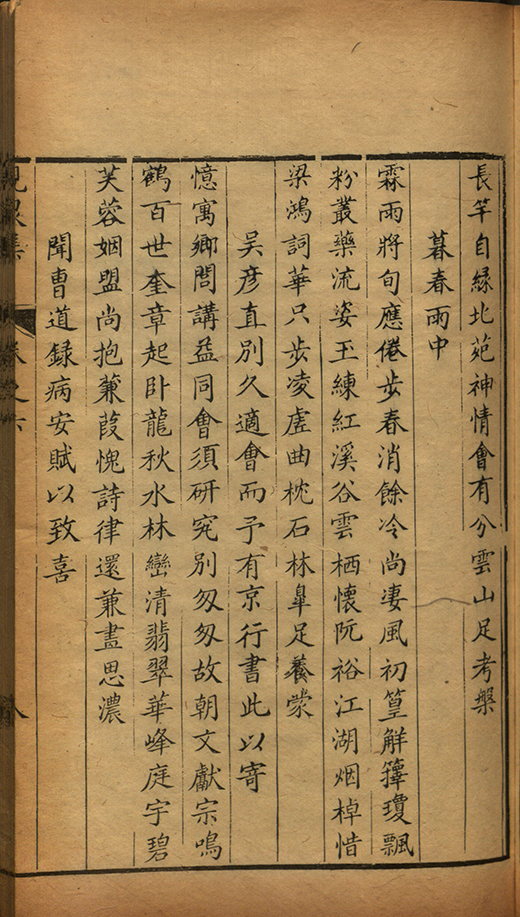 長竿自緑北苑神情會有分雲山足考槃
暮春雨中
霖雨將旬應倦步春消餘冷尚淒風初篁觧籜瓊飄
粉叢藥流姿玉練紅溪谷雲栖懷阮裕江湖烟棹惜
梁鴻詞華只步凌虗曲枕石林臯足養蒙
吴彦直別久適會而予有京行書此以寄
憶寓鄉問講益同會須研究別匆匆故朝文獻宗鳴
鶴百世奎章起卧龍秋水林巒清翡翠華峰庭宇碧
芙蓉姻盟尚抱蒹葭愧詩律還兼畫思濃
聞曹道録病安賦以致喜
集
八